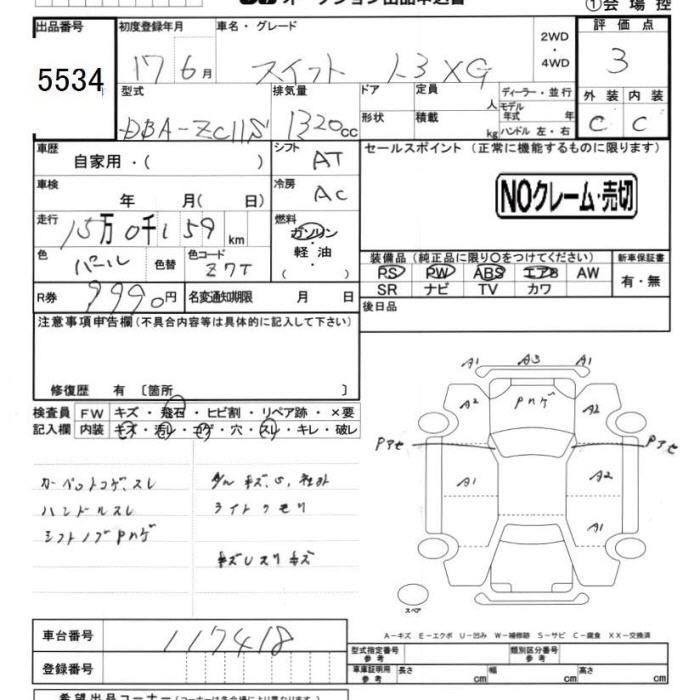 オークション出品申込書
①会場控
出品番号 初度登録年月 車名・グレード 2WD・4WD 評価点
5534 17年6月 スイフト 1.3 XG 3
型式 排気量 ドア 定員 人 ディーラー・並行 外装 内装
DBA-ZC11S 1320cc 形状 積載 kg モデル年式 年 ハンドル 左・右 C C
車歴 自家用・( ) シフト AT セールスポイント(正常に機能するものに限ります)
車検 年 月( 日) 冷房 AC NOクレーム・売切
走行 15万0千159km 燃料 ガソリン・軽油・( )
色 パール 色替 色コード Z7T
装備品(純正品に限り○をつけてください) 新車保証書
PS PW ABS エアB AW 有・無
SR ナビ TV カワ
R券 9990円 名変通知期限 月 日 後日品
注意事項申告欄(不具合内容等は具体的に記入して下さい)
修復歴 有〔箇所 〕
検査員 FW キズ・飛石・ヒビ割・リペア跡・×要
記入欄 内装 キズ・汚レ・コゲ・穴・スレ・キレ・破レ
A1 A3 A1
A2 Pハゲ A2
Pアセ Pアセ
A1 A2
A1
スペア
カーペットコゲ、スレ
ハンドルスレ ライトクモリ
シフトノブPハゲ
車台番号 117418
登録番号
A-キズ E-エクボ U-凹み W-補修跡 S-サビ C-腐食 XX-交換済
型式指定番号 参考 類別区分番号 参考
車庫証明用 参考 長さ cm 幅 cm 高さ cm
希望出品コーナー(コーナーは各会場により異なります。)